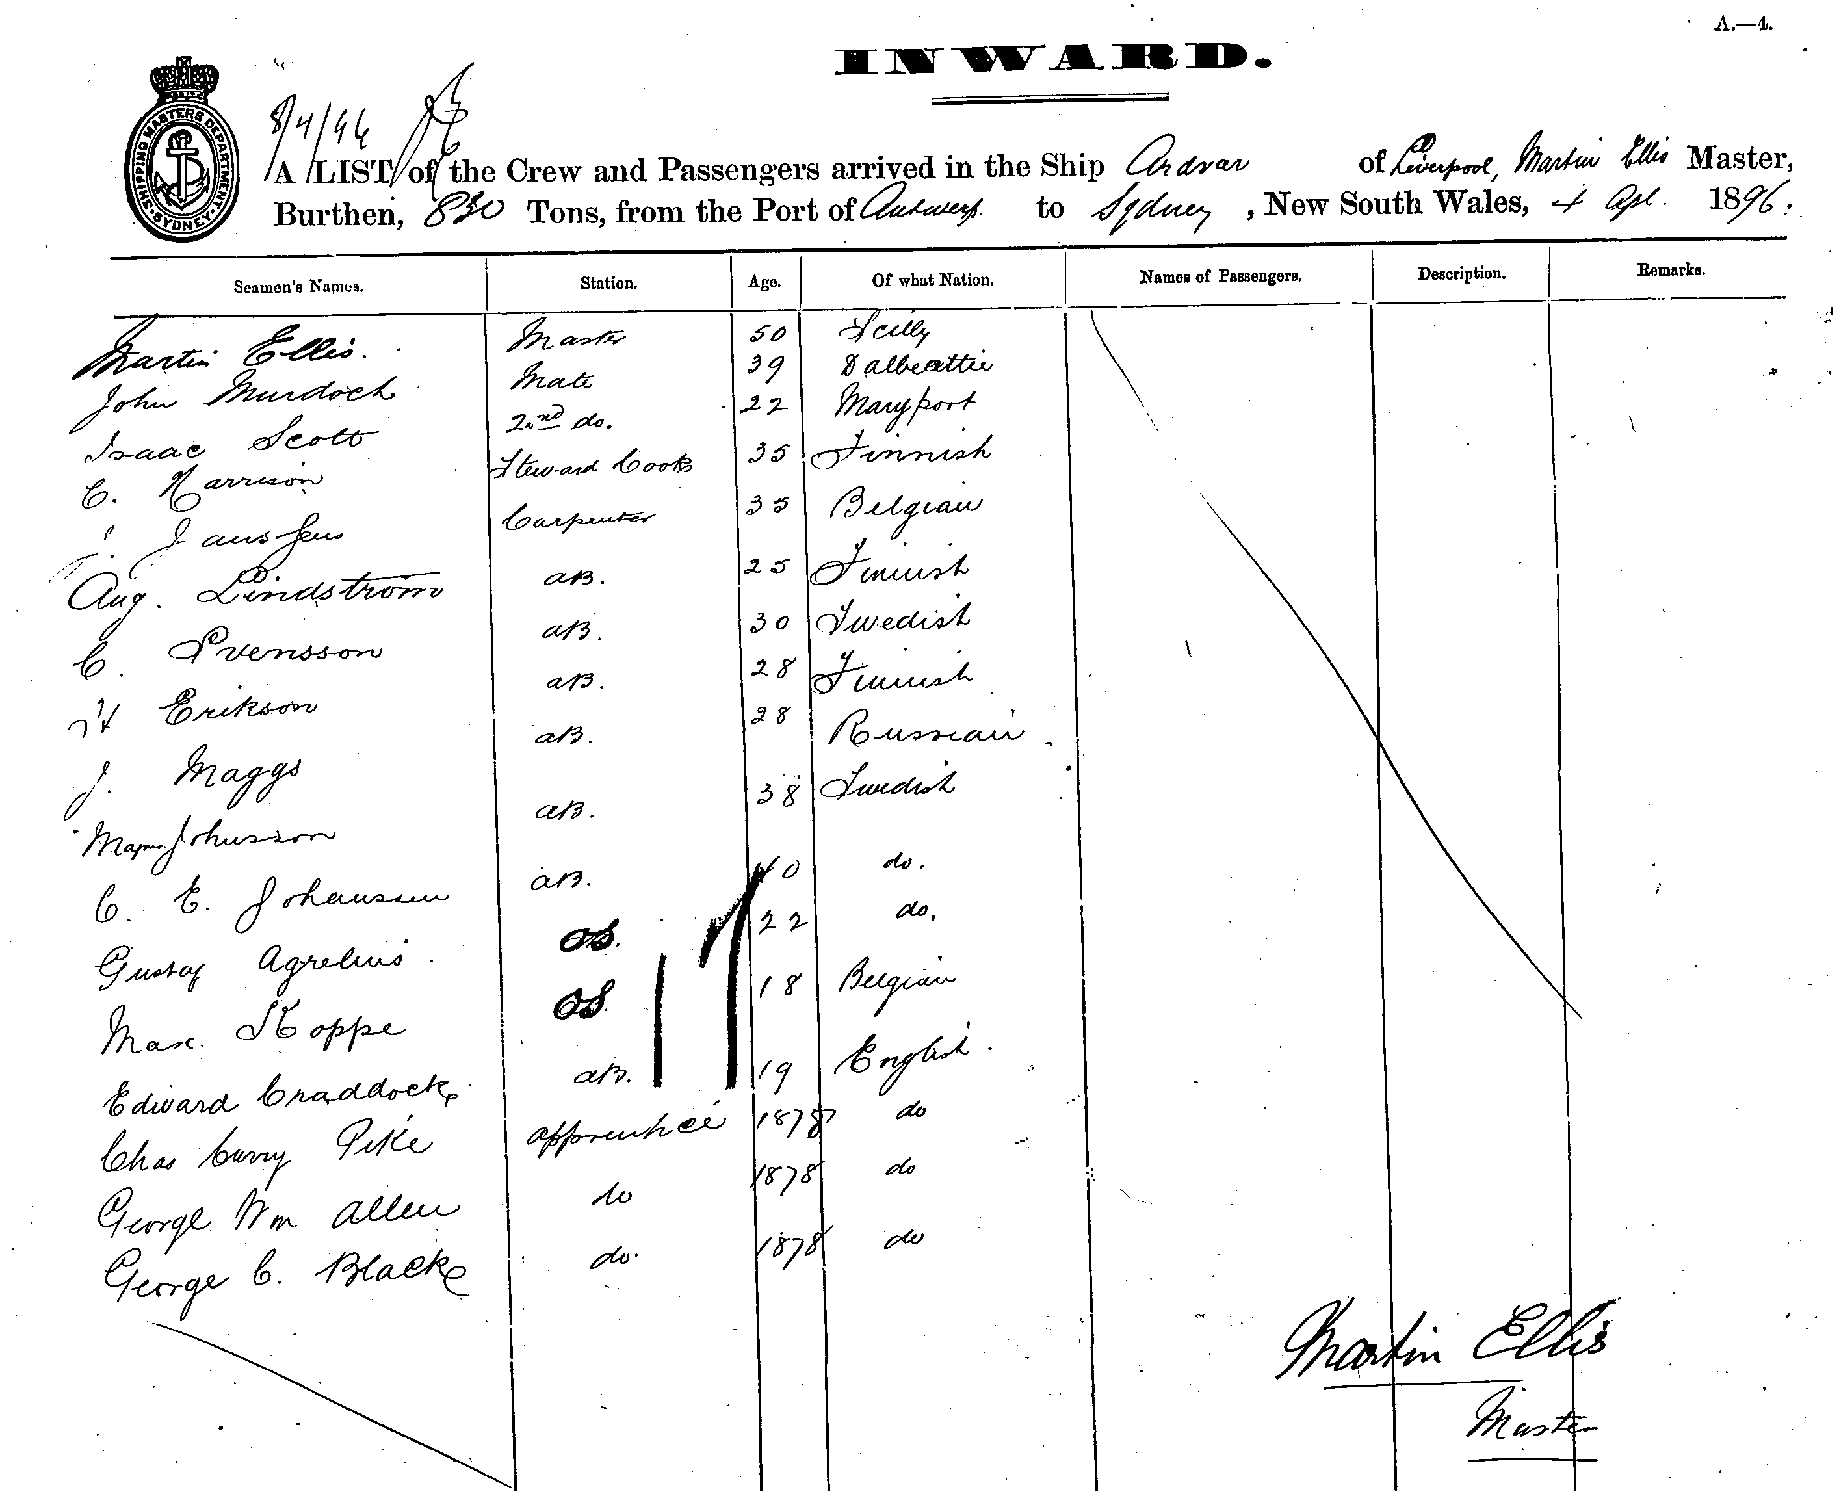 A.—4.
INWARD.
SHIPPING MASTERS DEPARTMENT SYDNEY
8/4/96
A LIST of the Crew and Passengers arrived in the Ship Ardvar of Liverpool, Martin Ellis Master,
Burthen, 830 Tons, from the Port of Antwerp. to Sydney, New South Wales, 4 Apl. 1896.
Seamen's Names. Station. Age. Of what Nation. Names of Passengers. Description. Remarks.
Martin Ellis. Master 50 Scilly
John Murdoch Mate 39 Dalbeattie
Isaac Scott 2nd do. 22 Maryport
C. Harrison Steward Cook 35 Finnish
J. Janssens Carpenter 35 Belgian
Aug. Lindström AB. 25 Finnish
C. Svensson AB. 30 Swedish
Erikson AB. 28 Finnish
J. Maggs AB. 28 Russian
Johnsson AB. 38 Swedish
C. E. Johanssen AB. 40 do.
Gustaf Agrelius. OS. 22 do.
Max. Koppe OS. 18 Belgian
Edward Craddock AB. 19 English.
Chas Curry Pike apprentice 1878 do
George Wm Allen do 1878 do
George C. Black do. 1878 do
17
Martin Ellis
Master